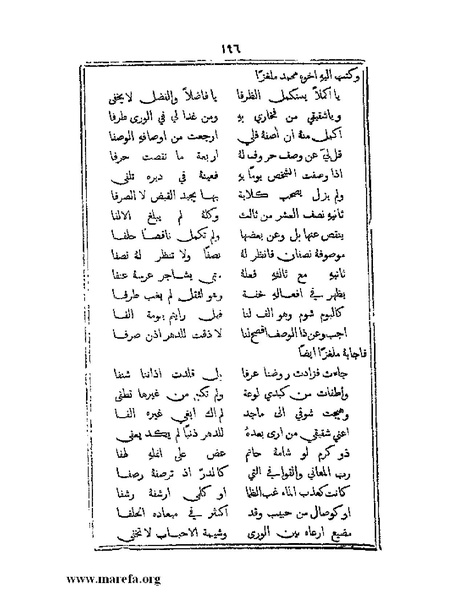 ١٩٦
وكتب اليه اخوه محمد ملغزًا
يا اكملاً يستكمل الظرفا يا فاضلاً والفضل لا يخفى
ويا شقيقي من فخاري به ومن غدا لي في الورى طرفا
اكمل منه ان أصفه فلي ارجعت من اوصافه الوصفا
قل لي عن وصف حروف له اربعة ما نقصت حرفا
اذا وصفت الشخص يومًا به فعينه في دبره تلفى
ولم يزل يصحب كلابة بها يجيد القبض لا الصرفا
ثانيه نصف العشر من ثالث وكله لم يبلغ الالفا
ينقص عنها بل وعن بعضها ولم تكمل ناقصًا حلفا
موصوفة نصفان فانظر له نصفًا ولا تنظر له نصفا
ثانيه مع ثالثه فعلة متى يشاجر عرسه عنفا
يظهر في افعاله خفة وهو لثقل لم يغب طرفا
كالبوم شوم وهو الف لنا فهل رايتم بومة الفا
اجب وعن ذا الوصف افصح لنا لا ذقت للدهر اذن صرفا
فاجابه ملغزًا ايضًا
جاءت فزادت روضنا عرفا بل قلدت اذاننا شنفا
واطفات من كبدي لوعة ولم تكن من غيرها تطفى
وهيجت شوقي الى ماجد لم اك ابغي غيره الفا
اعني شقيقي من ارى بعده للدهر ذنبًا لم يكد يعفى
ذو كرم لو شامه حاتم عض على انفه لهفا
رب المعاني والقوافي التي كالدر اذ ترصفه رصفا
كانت كعذب الماء غب الظما او كلمى ارشفه رشفا
او كوصال من حبيب وقد اكثر في ميعاده الخلفا
مضيع ارعاه بين الورى وشيمة الاحباب لا تخفى
www.marefa.org